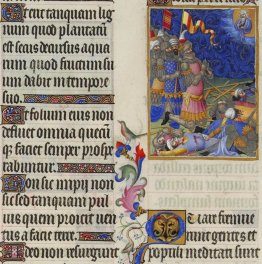 Et erit tanquam lig
num quod plantatū
est secus decursus aqua
rum quod fructum su
um dabit in tempore
suo.
Et folium eius non
defluet omnia quecū
q; faciet semper prospe
rabuntur.
Non sic impii non
sic sed tanquam pul
uis quem proicit uen
tus a facie terre.
Ideo non resurgunt
fremue
runt gentes et
populi meditati sunt